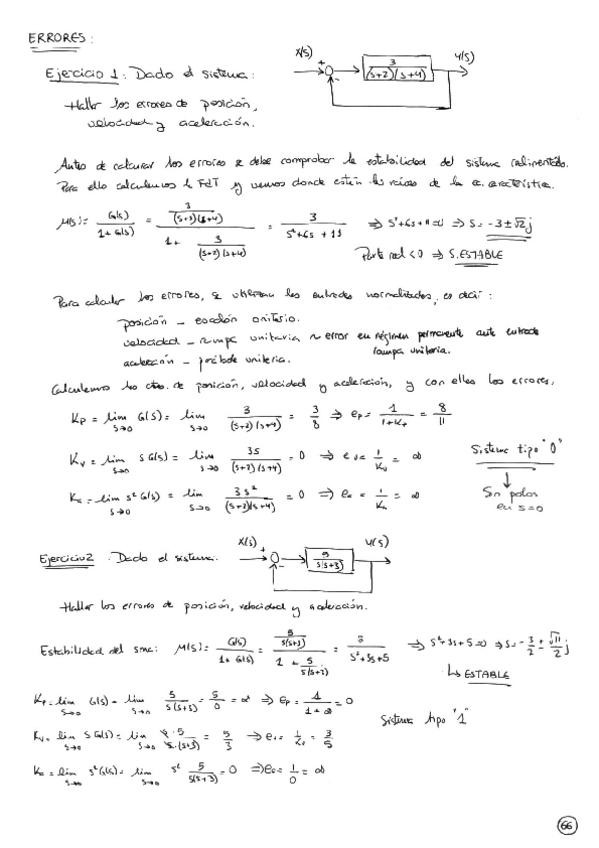 ERRORES:
Ejercicio 1: Dado el sistema:
X(s) + - 3/((s+2)(s+4)) Y(s)
Hallar los errores de posición,
velocidad y aceleración.
Antes de calcular los errores se debe comprobar la estabilidad del sistema realimentado.
Para ello calculamos la FdT y vemos donde están las raíces de la ec. característica.
M(s) = G(s)/(1+G(s)) = (3/((s+2)(s+4)))/(1 + 3/((s+2)(s+4))) = 3/(s²+6s+11) ⇒ s²+6s+11=0 ⇒ s = -3 ± √2 j
Parte real < 0 ⇒ S. ESTABLE
Para calcular los errores, se utilizan las entradas normalizadas, es decir:
posición - escalón unitario.
velocidad - rampa unitaria ~ error en régimen permanente ante entrada
rampa unitaria.
aceleración - parábola unitaria.
Calculemos las ctes. de posición, velocidad y aceleración, y con ellas los errores.
Kp = lim s→0 G(s) = lim s→0 3/((s+2)(s+4)) = 3/8 ⇒ ep = 1/(1+Kp) = 8/11
Kv = lim s→0 s G(s) = lim s→0 3s/((s+2)(s+4)) = 0 ⇒ ev = 1/Kv = ∞
Sistema tipo "0"
Ka = lim s→0 s² G(s) = lim s→0 3s²/((s+2)(s+4)) = 0 ⇒ ea = 1/Ka = ∞
↓
Sin polos
en s=0
Ejercicio 2: Dado el sistema:
X(s) + - 5/(s(s+3)) Y(s)
Hallar los errores de posición, velocidad y aceleración.
Estabilidad del sma: M(s) = G(s)/(1+G(s)) = (5/(s(s+3)))/(1 + 5/(s(s+3))) = 5/(s²+3s+5) ⇒ s²+3s+5=0 ⇒ s = -3/2 ± √11/2 j
↳ ESTABLE
Kp = lim s→0 G(s) = lim s→0 5/(s(s+3)) = 5/0 = ∞ ⇒ ep = 1/(1+∞) = 0
Sistema tipo "1"
Kv = lim s→0 s G(s) = lim s→0 s·5/(s·(s+3)) = 5/3 ⇒ ev = 1/Kv = 3/5
Ka = lim s→0 s² G(s) = lim s→0 s² 5/(s(s+3)) = 0 ⇒ ea = 1/0 = ∞
66